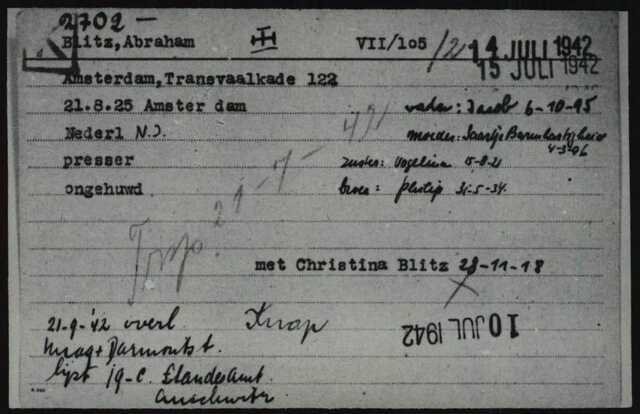 2702 -
Blitz, Abraham VII/105 /2 14 JULI 1942
15 JULI 1942
Amsterdam, Transvaalkade 122
21.8.25 Amster dam vader: Jacob 6-10-95
Nederl N.J. moeder: Saartje
4-3-06
presser zuster: Vogelina 15-8-21
ongehuwd broer: Philip 31-5-34.
21-7-42
met Christina Blitz 28-11-18
21-9-'42 overl. Knap 10 JUL 1942
Maag + Darmontst.
lijst 19-C. Standesamt.
Auschwitz